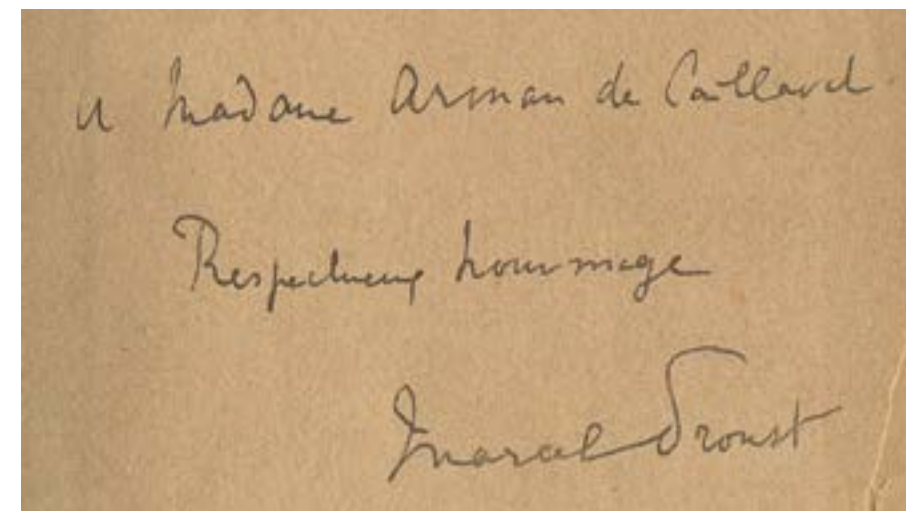 A Madame Arman de Caillavet
Respectueux hommage
Marcel Proust